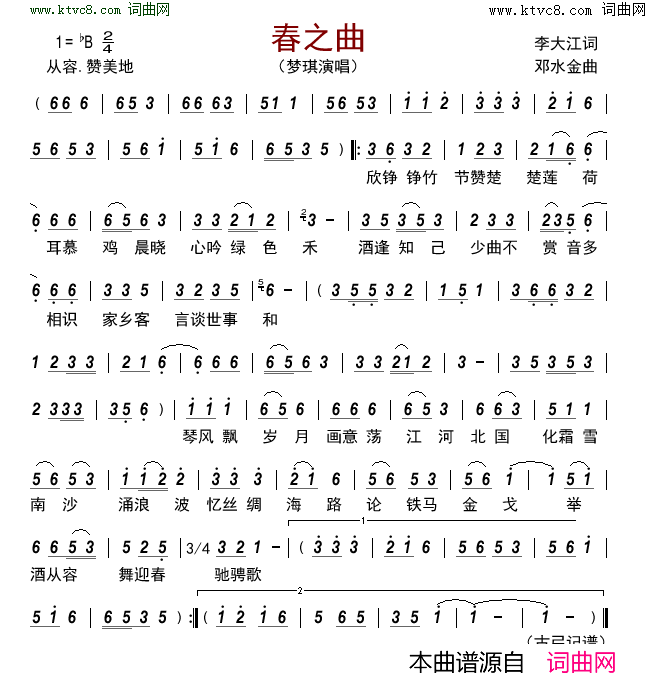 www.ktvc8.com 词曲网
www.ktvc8.com 词曲网
春之曲
1=♭B 2/4
李大江词
从容.赞美地
（梦琪演唱）
邓水金曲
( 6 6 6 | 6 5 3 | 6 6 6 3 | 5 1 1 | 5 3 5 | 1 1 2 | 3 3 3 | 2 1 6 |
5 6 5 3 | 5 6 1 | 5 1 6 | 6 5 3 5 ) |: 3 6 3 2 | 1 2 3 | 2 1 6 6 |
欣铮 铮竹 节赞楚 楚莲 荷
6 6 6 | 6 5 6 3 | 3 3 2 1 2 | 2 3 - | 3 5 3 5 3 | 3 3 2 | 2 3 5 6 |
耳慕 鸡 晨晓 心吟 绿 色 禾 酒逢 知 己 少曲不 赏 音多
6 6 6 | 3 3 5 | 3 2 3 5 | 5 6 - | ( 3 5 5 3 2 | 1 5 1 | 3 6 6 3 2 |
相识 家乡客 言谈世事 和
1 2 3 3 | 2 1 6 | 6 6 6 | 6 5 6 3 | 3 3 2 1 | 3 - | 3 5 3 5 3 |
2 3 3 3 | 3 5 6 ) | 1 1 1 | 6 5 6 | 6 6 6 | 6 5 3 | 6 6 3 | 5 1 1 |
琴风 飘 岁 月 画意 荡 江 河 北 国 化霜 雪
5 6 5 3 | 1 1 2 2 | 3 3 3 | 2 1 6 | 5 5 3 | 5 6 1 | 1 5 1 |
南 沙 涌浪 波 忆丝 绸 海 路 论 铁马 金 戈 举
1
6 6 5 3 | 5 2 5 | 3/4 3 2 1 - | ( 3 3 3 | 2 1 6 | 5 6 5 3 | 5 6 1 |
酒从容 舞迎春 驰骋歌
2
5 1 6 | 6 5 3 5 ) :| ( 1 2 1 6 | 5 6 5 | 3 5 1 | 1 - | 1 ) |
（古弓记谱）
本曲谱源自 词曲网